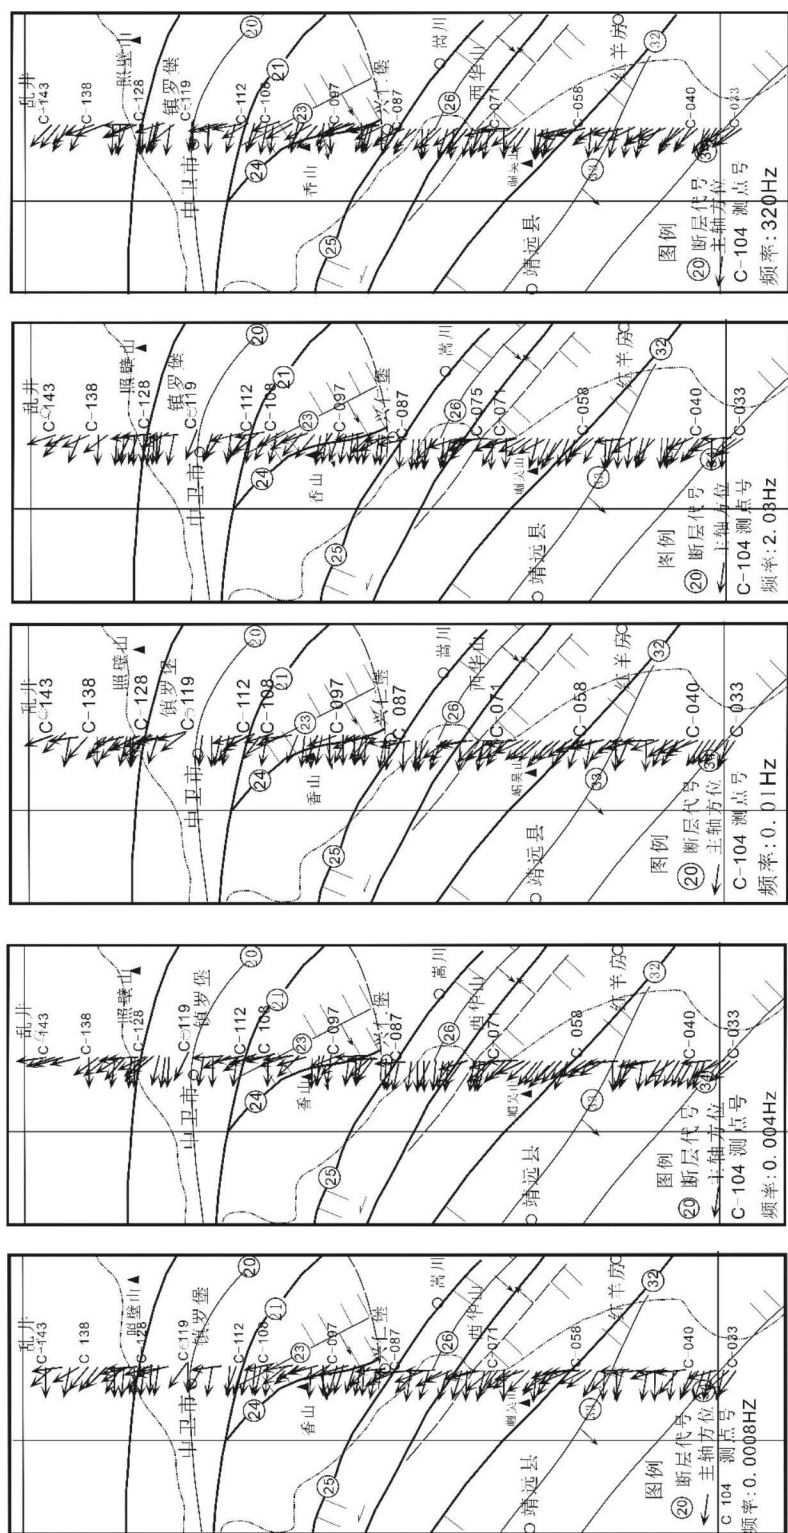 乱井
C-143
C-138
照壁山
C-128
镇罗堡
C-119
中卫市
20
C-112
C-108
21
23
24
C-097
香山
兴仁堡
C-087
25
嵩川
26
西华山
C-071
C-058
红羊房
32
33
靖远县
C-040
C-033
图例
20 断层代号
主轴方位
C-104 测点号
频率:320Hz
乱井
C-143
C-138
照壁山
C-128
镇罗堡
C-119
中卫市
20
C-112
C-108
21
23
24
C-097
香山
兴仁堡
C-087
25
嵩川
26
C-075
C-071
C-058
红羊房
32
33
靖远县
C-040
C-033
图例
20 断层代号
主轴方位
C-104 测点号
频率:2.03Hz
乱井
C-143
C-138
照壁山
C-128
镇罗堡
C-119
中卫市
20
C-112
C-108
21
23
24
C-097
香山
兴仁堡
C-087
25
嵩川
26
西华山
C-071
C-058
红羊房
32
33
靖远县
C-040
C-033
图例
20 断层代号
主轴方位
C-104 测点号
频率:0.01Hz
乱井
C-143
C-138
照壁山
C-128
镇罗堡
C-119
中卫市
20
C-112
C-108
21
23
24
C-097
香山
兴仁堡
C-087
25
嵩川
26
西华山
C-071
C-058
红羊房
32
33
靖远县
C-040
C-033
图例
20 断层代号
主轴方位
C-104 测点号
频率:0.004Hz
乱井
C-143
C-138
照壁山
C-128
镇罗堡
C-119
中卫市
20
C-112
C-108
21
23
24
C-097
香山
兴仁堡
C-087
25
嵩川
26
西华山
C-071
C-058
红羊房
32
33
靖远县
C-040
C-033
图例
20 断层代号
主轴方位
C 104 测点号
频率:0.0008HZ